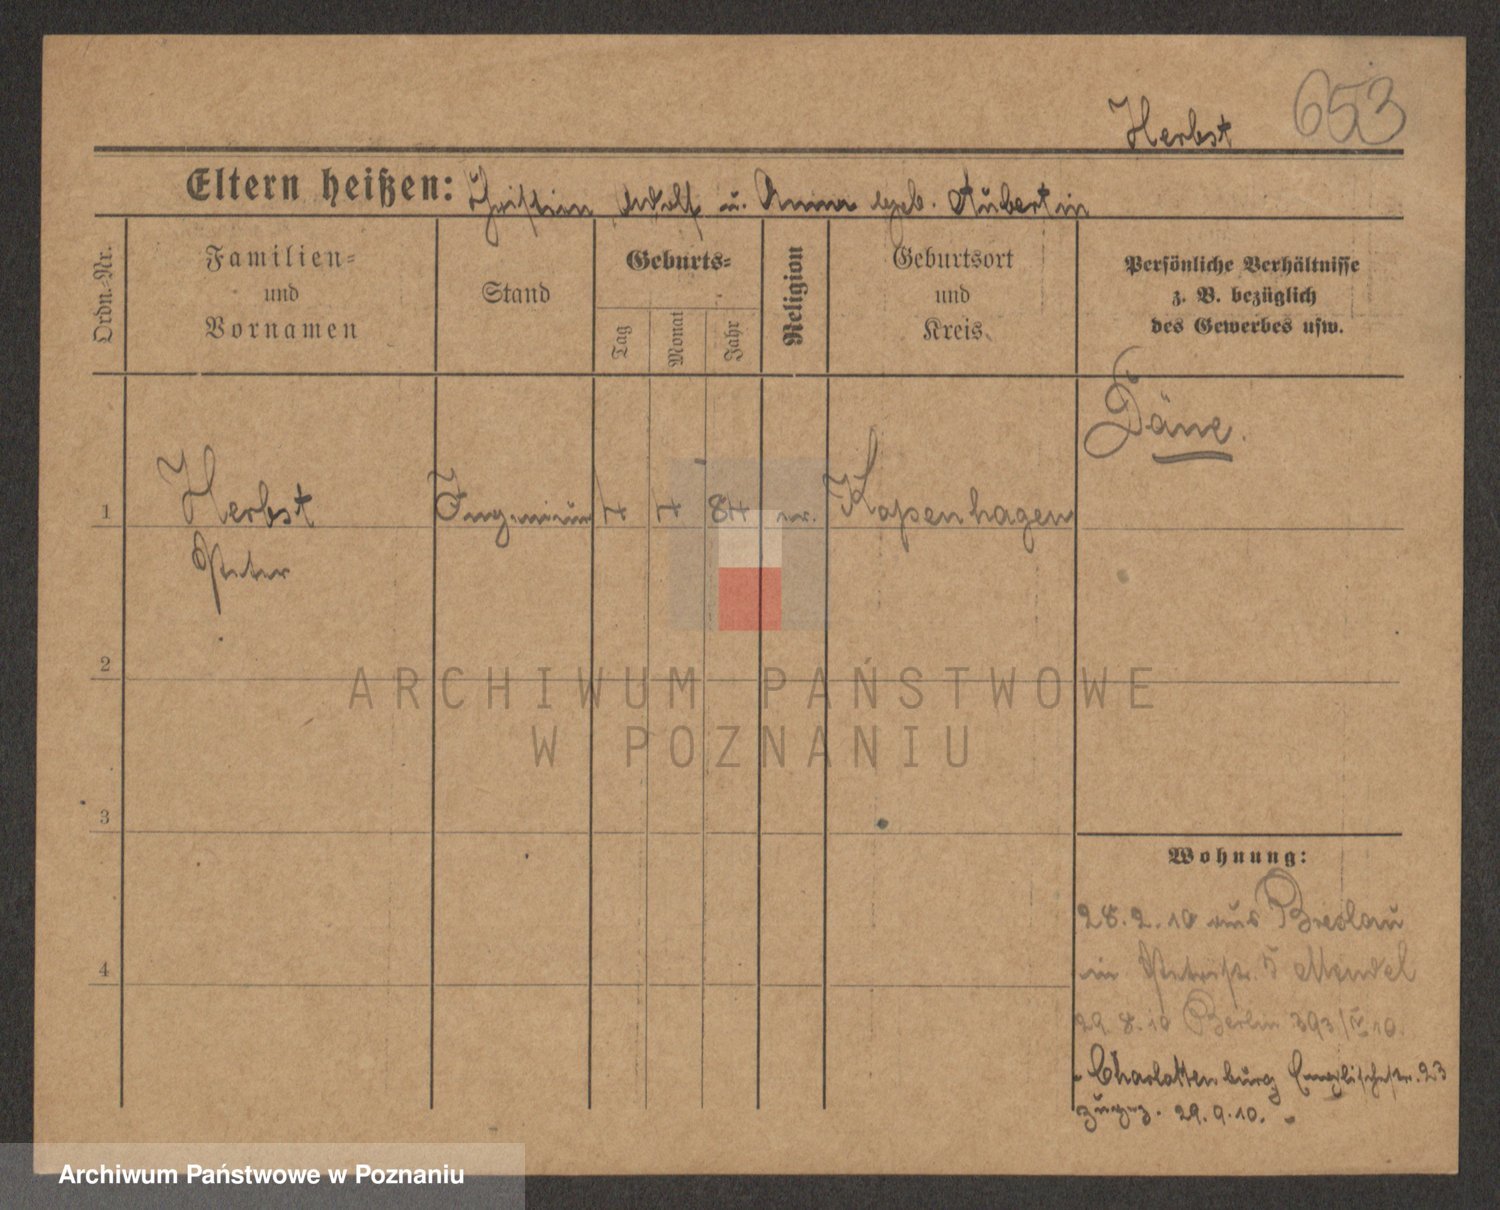 653
Herbst
Eltern heißen: Christian Adolf u. Anna geb. Aubertin
Ordn.-Nr.
Familien=
und
Vornamen
Stand
Geburts=
Tag
Monat
Jahr
Religion
Geburtsort
und
Kreis
Persönliche Verhältnisse
z. B. bezüglich
des Gewerbes usw.
Däne.
1 Herbst Ingenieur 84 Kopenhagen
Peter
2
ARCHIWUM PAŃSTWOWE
W POZNANIU
3
Wohnung:
28.2.10 aus Breslau
4
in Petristr. 5 Mendel
29.8.10 Berlin 393/V 10.
Charlottenburg Englischestr. 23
zugez. 29.9.10.
Archiwum Państwowe w Poznaniu